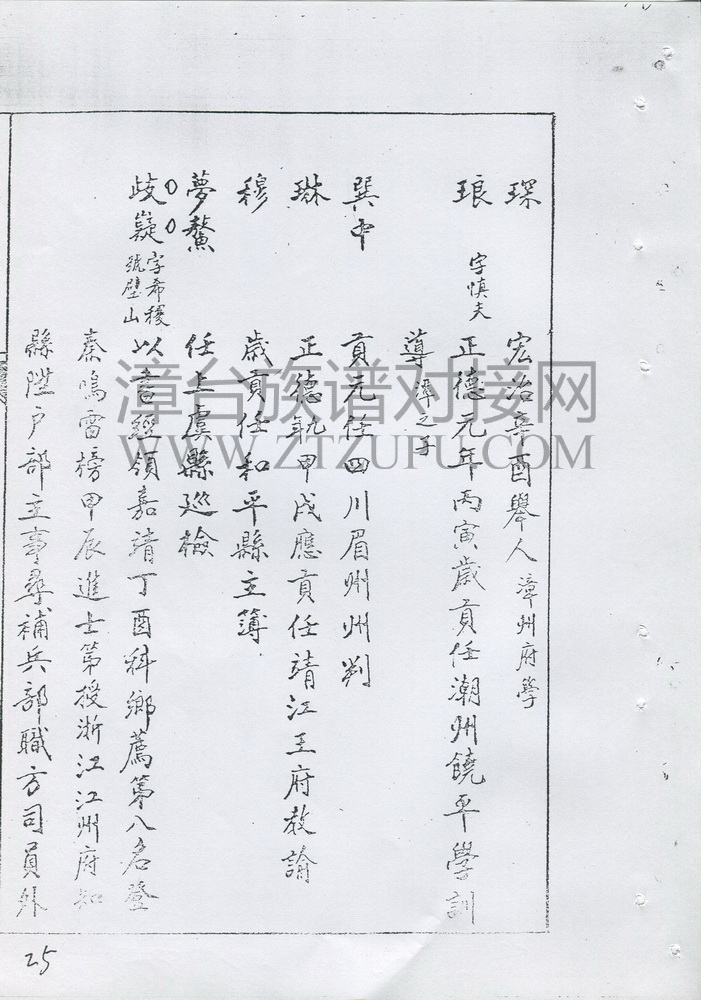 琛 宏治辛酉舉人 漳州府學
琅 字慎夫 正德元年丙寅歲貢任潮州饒平學訓
導 潭之子
巽中 貢元任四川眉州州判
琳 正德軌甲戌應貢任靖江王府教諭
穆 歲貢任和平縣主簿
夢鰲 任上虞縣廵檢
歧嶷 字希稷 號壁山 以書經領嘉靖丁酉科鄉薦第八名登
秦鳴雷榜甲辰進士第授浙江江州府知
縣陞戶部主事尋補兵部職方司員外
漳台族谱对接网
WWW.ZTZUPU.COM
25